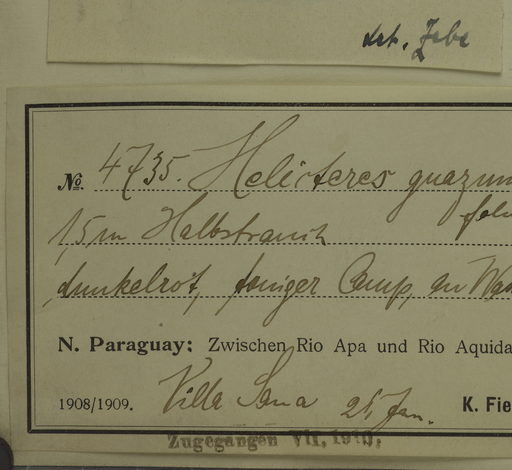 det. Zebe
№ 4735. Helicteres guazum
1,5m Halbstrauch
dunkelrot, toniger Camp, an Wa
N. Paraguay: Zwischen Rio Apa und Rio Aquida
1908/1909. Villa Sana 25 Jan. K. Fie
Zugegangen VII. 1910.